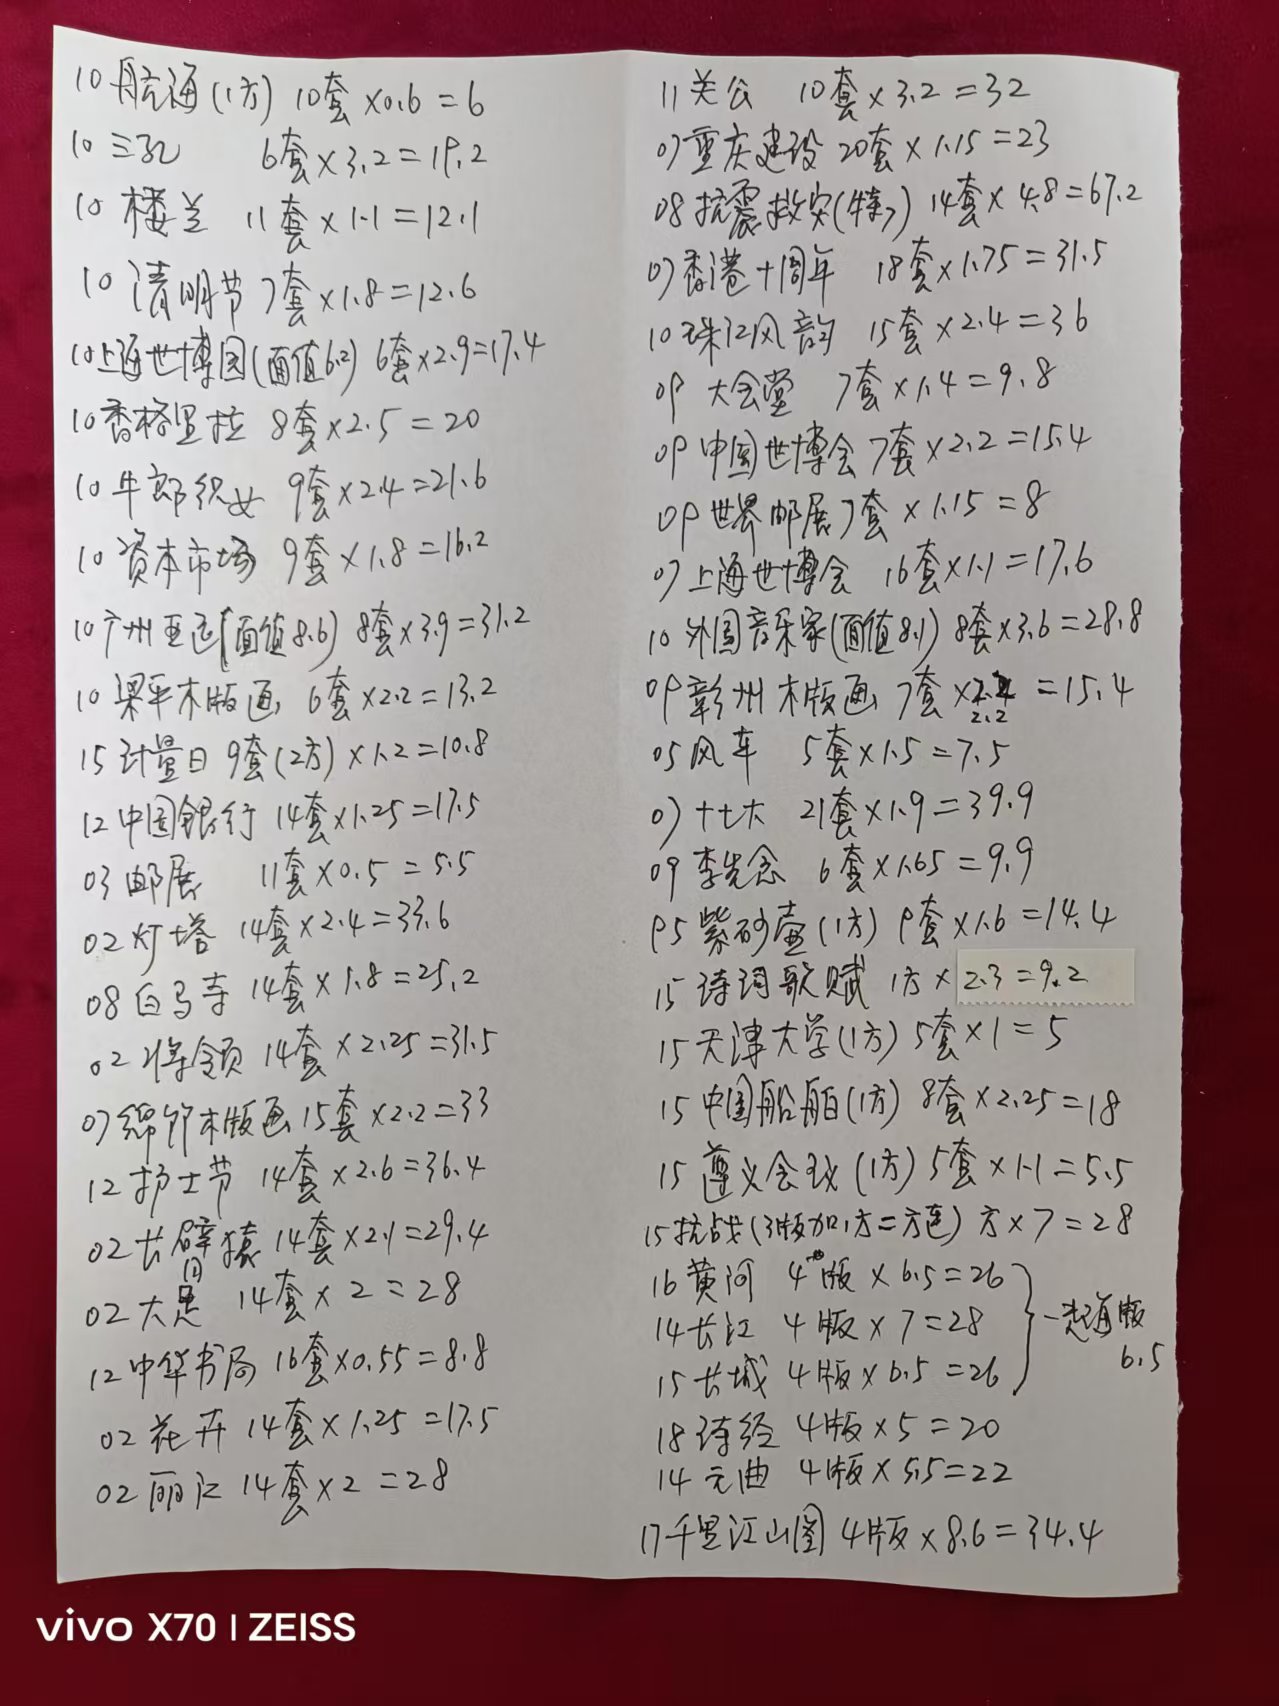 10 航海(1方) 10套×0.6=6
10 三孔 6套×3.2=19.2
10 楼兰 11套×1.1=12.1
10 清明节 7套×1.8=12.6
10上海世博园(面值6.2) 6套×2.9=17.4
10香格里拉 8套×2.5=20
10 牛郎织女 9套×2.4=21.6
10 资本市场 9套×1.8=16.2
10广州亚运(面值8.6) 8套×3.9=31.2
10 梁平木版画 6套×2.2=13.2
15 计量日 9套(2方)×1.2=10.8
12中国銀行 14套×1.25=17.5
03 邮展 11套×0.5=5.5
02灯塔 14套×2.4=33.6
08白马寺 14套×1.8=25.2
02将领 14套×2.25=31.5
07绵竹木版画15套×2.2=33
12护士节 14套×2.6=36.4
02长臂猿 14套×2.1=29.4
02大足 14套×2=28
12中华书局 16套×0.55=8.8
02花卉 14套×1.25=17.5
02丽江 14套×2=28
11关公 10套×3.2=32
07重庆建设 20套×1.15=23
08抗震救灾(特7) 14套×4.8=67.2
07香港十周年 18套×1.75=31.5
10珠江风韵 15套×2.4=36
09 大会堂 7套×1.4=9.8
09中国世博会7套×2.2=15.4
09世界邮展7套×1.15=8
07上海世博会 16套×1.1=17.6
10外国音乐家(面值8.1) 8套×3.6=28.8
09彰州木版画 7套×2.2=15.4
05风车 5套×1.5=7.5
07十七大 21套×1.9=39.9
09李先念 6套×1.65=9.9
95紫砂壶(1方) 9套×1.6=14.4
15诗词歌赋 1方×2.3=9.2
15天津大学(1方) 5套×1=5
15中国船舶(1方) 8套×2.25=18
15遵义会议(1方) 5套×1.1=5.5
15抗战(3版加1方二方连) 方×7=28
16黄河 4版×6.5=26
14长江 4版×7=28
一起海版
6.5
15长城 4版×6.5=26
18诗经 4版×5=20
14元曲 4版×5.5=22
17千里江山图 4版×8.6=34.4
vivo X70 | ZEISS